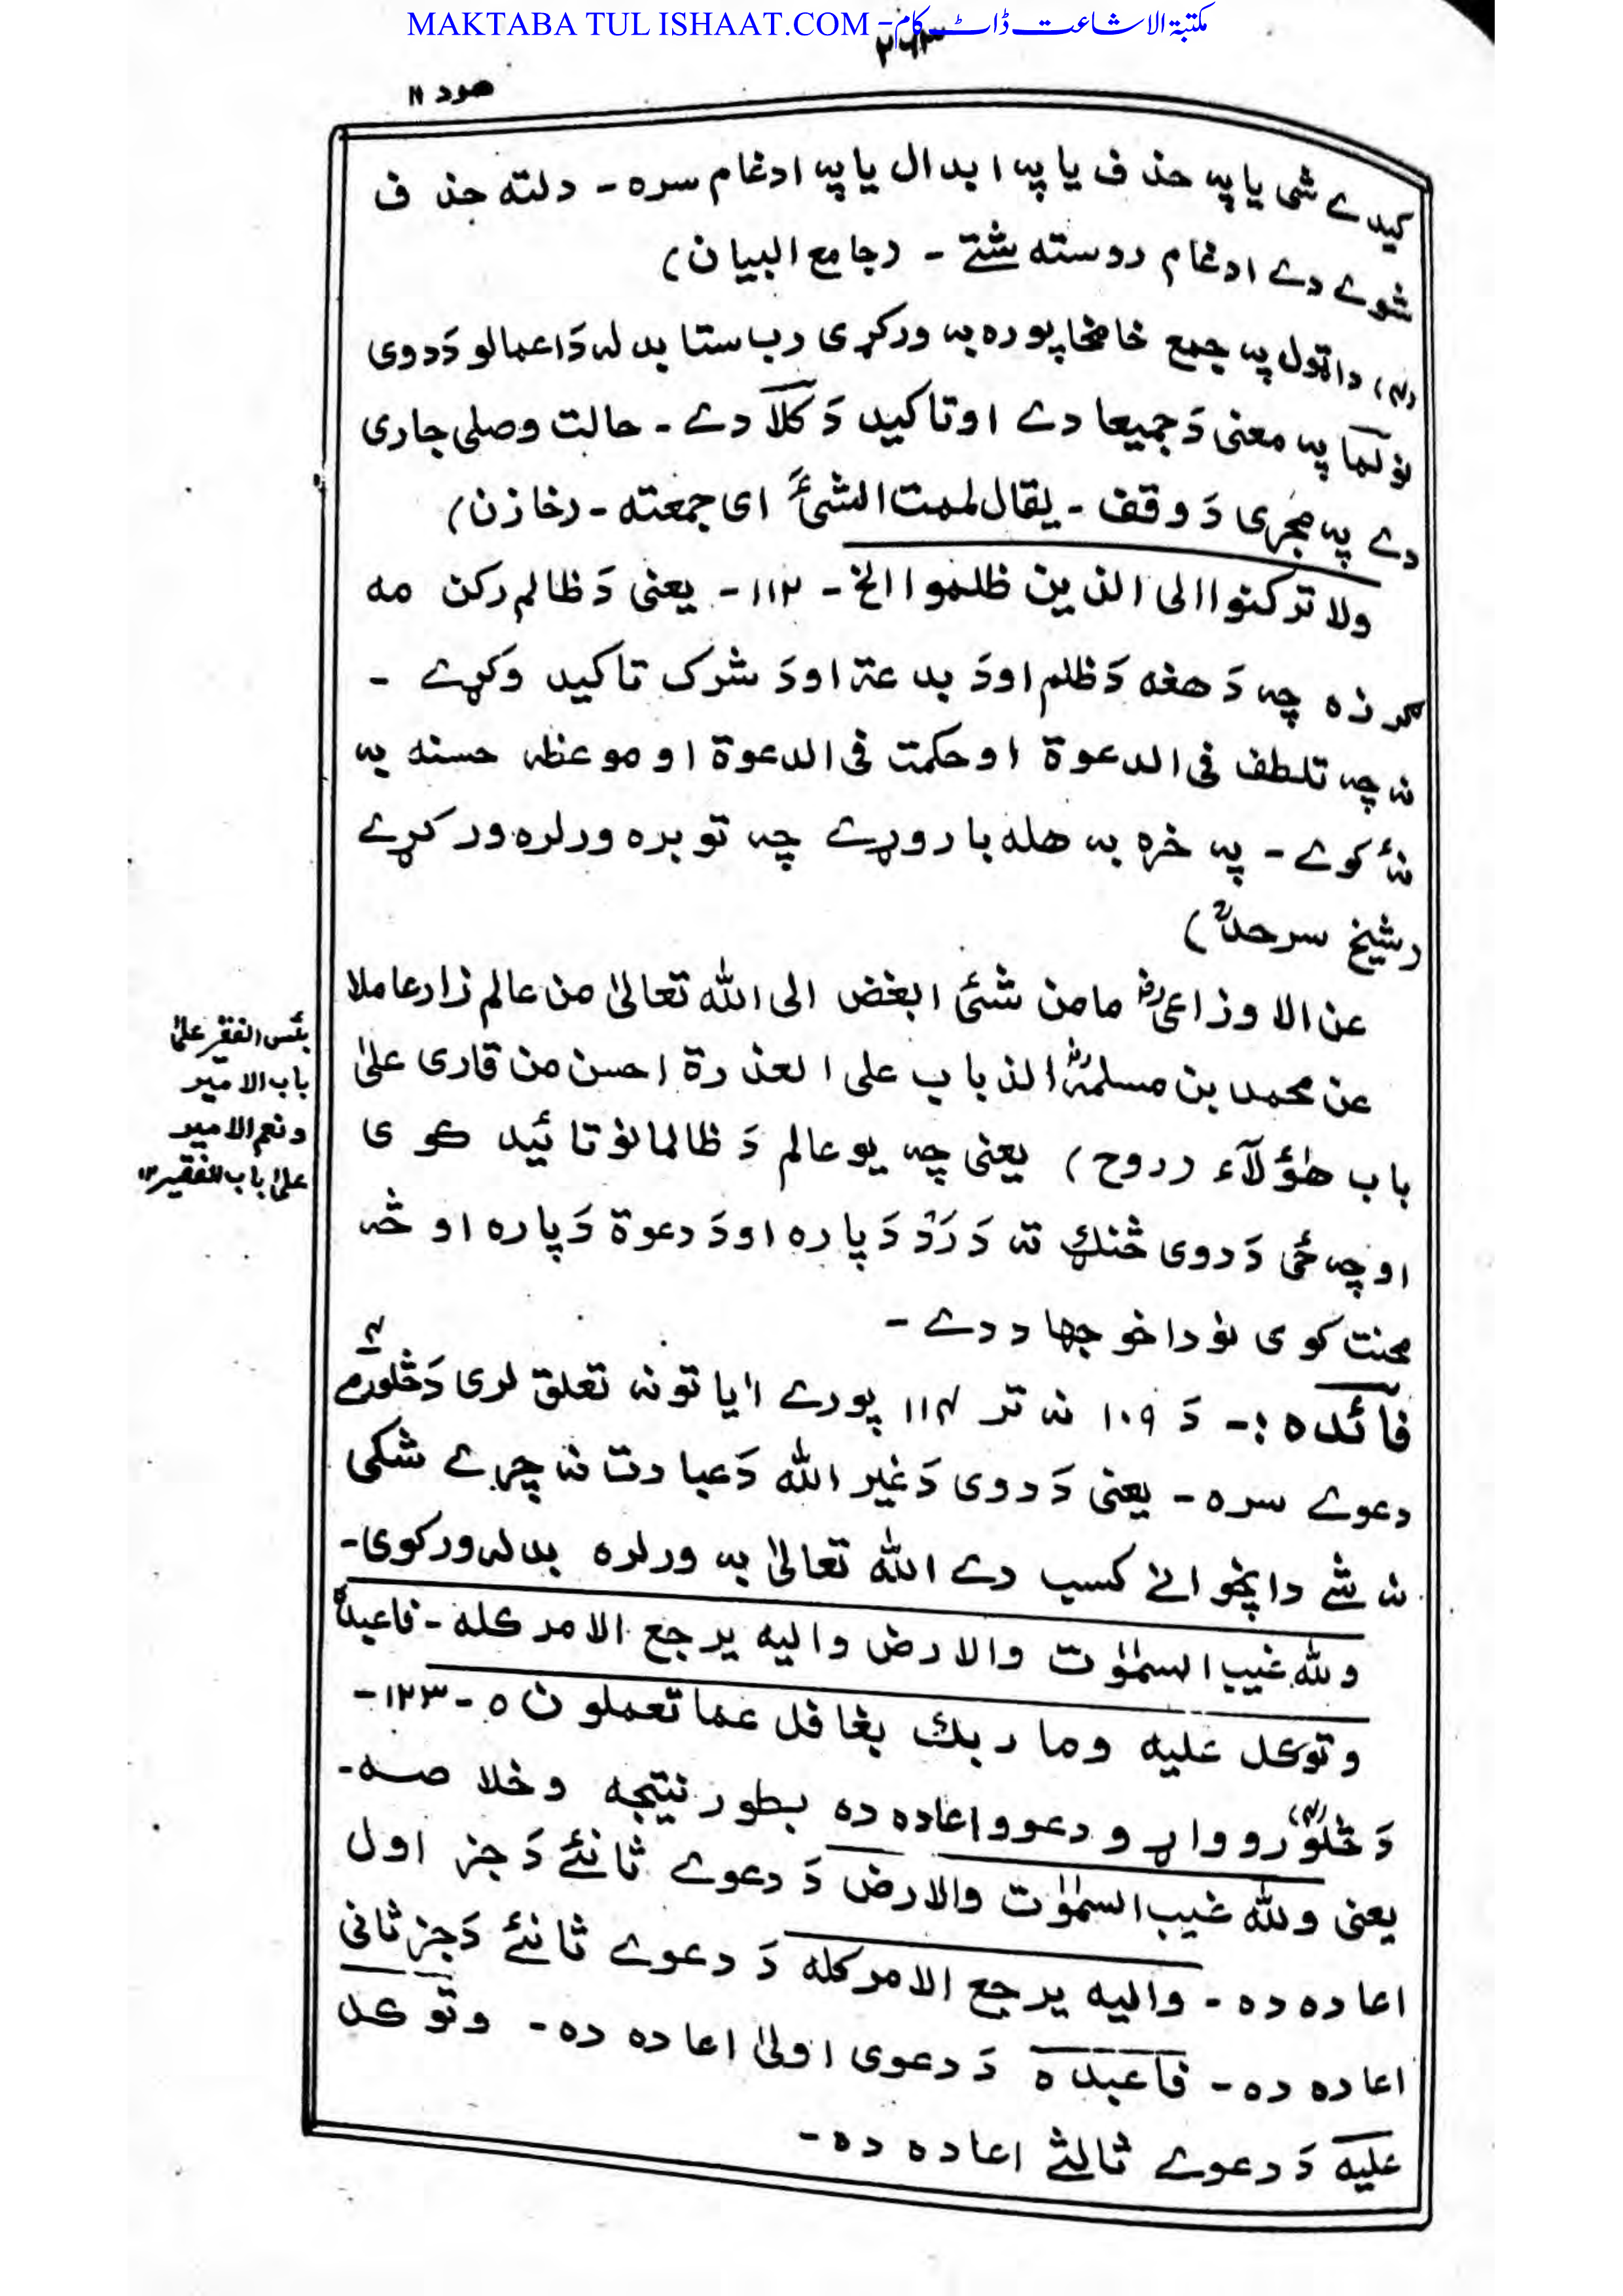 MAKTABA TUL ISHAAT.COM - مکتبۃ الاشاعت ڈاٹ کام
۲۶۳
هود ۱۱
کیدے شی یا په حذف یا په ابدال یا په ادغام سره - دلته حذف
شوے دے ادغام روسته شتے - (جامع البیان)
(۴) دا ټول په جمع خامخا پوره به ورکړی رب ستا بدله دَ اعمالو دَ دوی
نو لَمّا په معنی دَ جمیعا دے او تاکید دَ کلّاً دے - حالت وصلی جاری
دے په مجری دَ وقف - یقال لممت الشیَٔ ای جمعته - (خازن)
ولا ترکنوا الی الذین ظلموا الخ - ۱۱۳ - یعنی دَ ظالم رکن مه
ګرزه چه دَ هغه دَ ظلم او دَ بدعة او دَ شرک تاکید وکړے -
نه چه تلطف فی الدعوة او حکمت فی الدعوة او موعظه حسنه به
نهٔ کوے - په خره به هله بار وړے چه توبره ورلره ورکړے
(شیخ سرحدؒ)
عن الاوزاعیؒ ما من شئی ابغض الی الله تعالیٰ من عالم زار عاملا
عن محمد بن مسلمةؓ الذباب علی العذرة احسن من قاری علیٰ
باب هٰؤلآء (روح) یعنی چه یو عالم دَ ظالمانو تائید کوی
او چه ځی دَ دوی څنګ ته دَ رَدّ دَ پاره او دَ دعوة دَ پاره او څه
محنت کوی نو دا خو جهاد دے -
بئس الفقیر علیٰ
باب الامیر
ونعم الامیر
علیٰ باب الفقیر ۱۲
فائده :- دَ ۱۰۹ نه تر ۱۱۴ پورے ایاتونه تعلق لری دَ څلورمے ۴
دعوے سره - یعنی دَ دوی دَ غیر الله دَ عبادت نه چرے شکی
نه شے دا پخوانے کسب دے الله تعالیٰ به ورلره بدله ورکوی -
ولله غیب السمٰوٰت والارض والیه یرجع الامر کله - فاعبده
وتوکل علیه وما ربك بغافل عما تعملون ٥ - ۱۲۳ -
دَ څلورو (۴) واړو دعوو اعاده ده بطور نتیجه وخلاصه -
یعنی ولله غیب السمٰوٰت والارض دَ دعوے ثانئے دَ جز اول
اعاده ده - والیه یرجع الامر کله دَ دعوے ثانئے دَ جز ثانی
اعاده ده - فاعبده دَ دعوی اولیٰ اعاده ده - وتوکل
علیه دَ دعوے ثالثے اعاده ده -